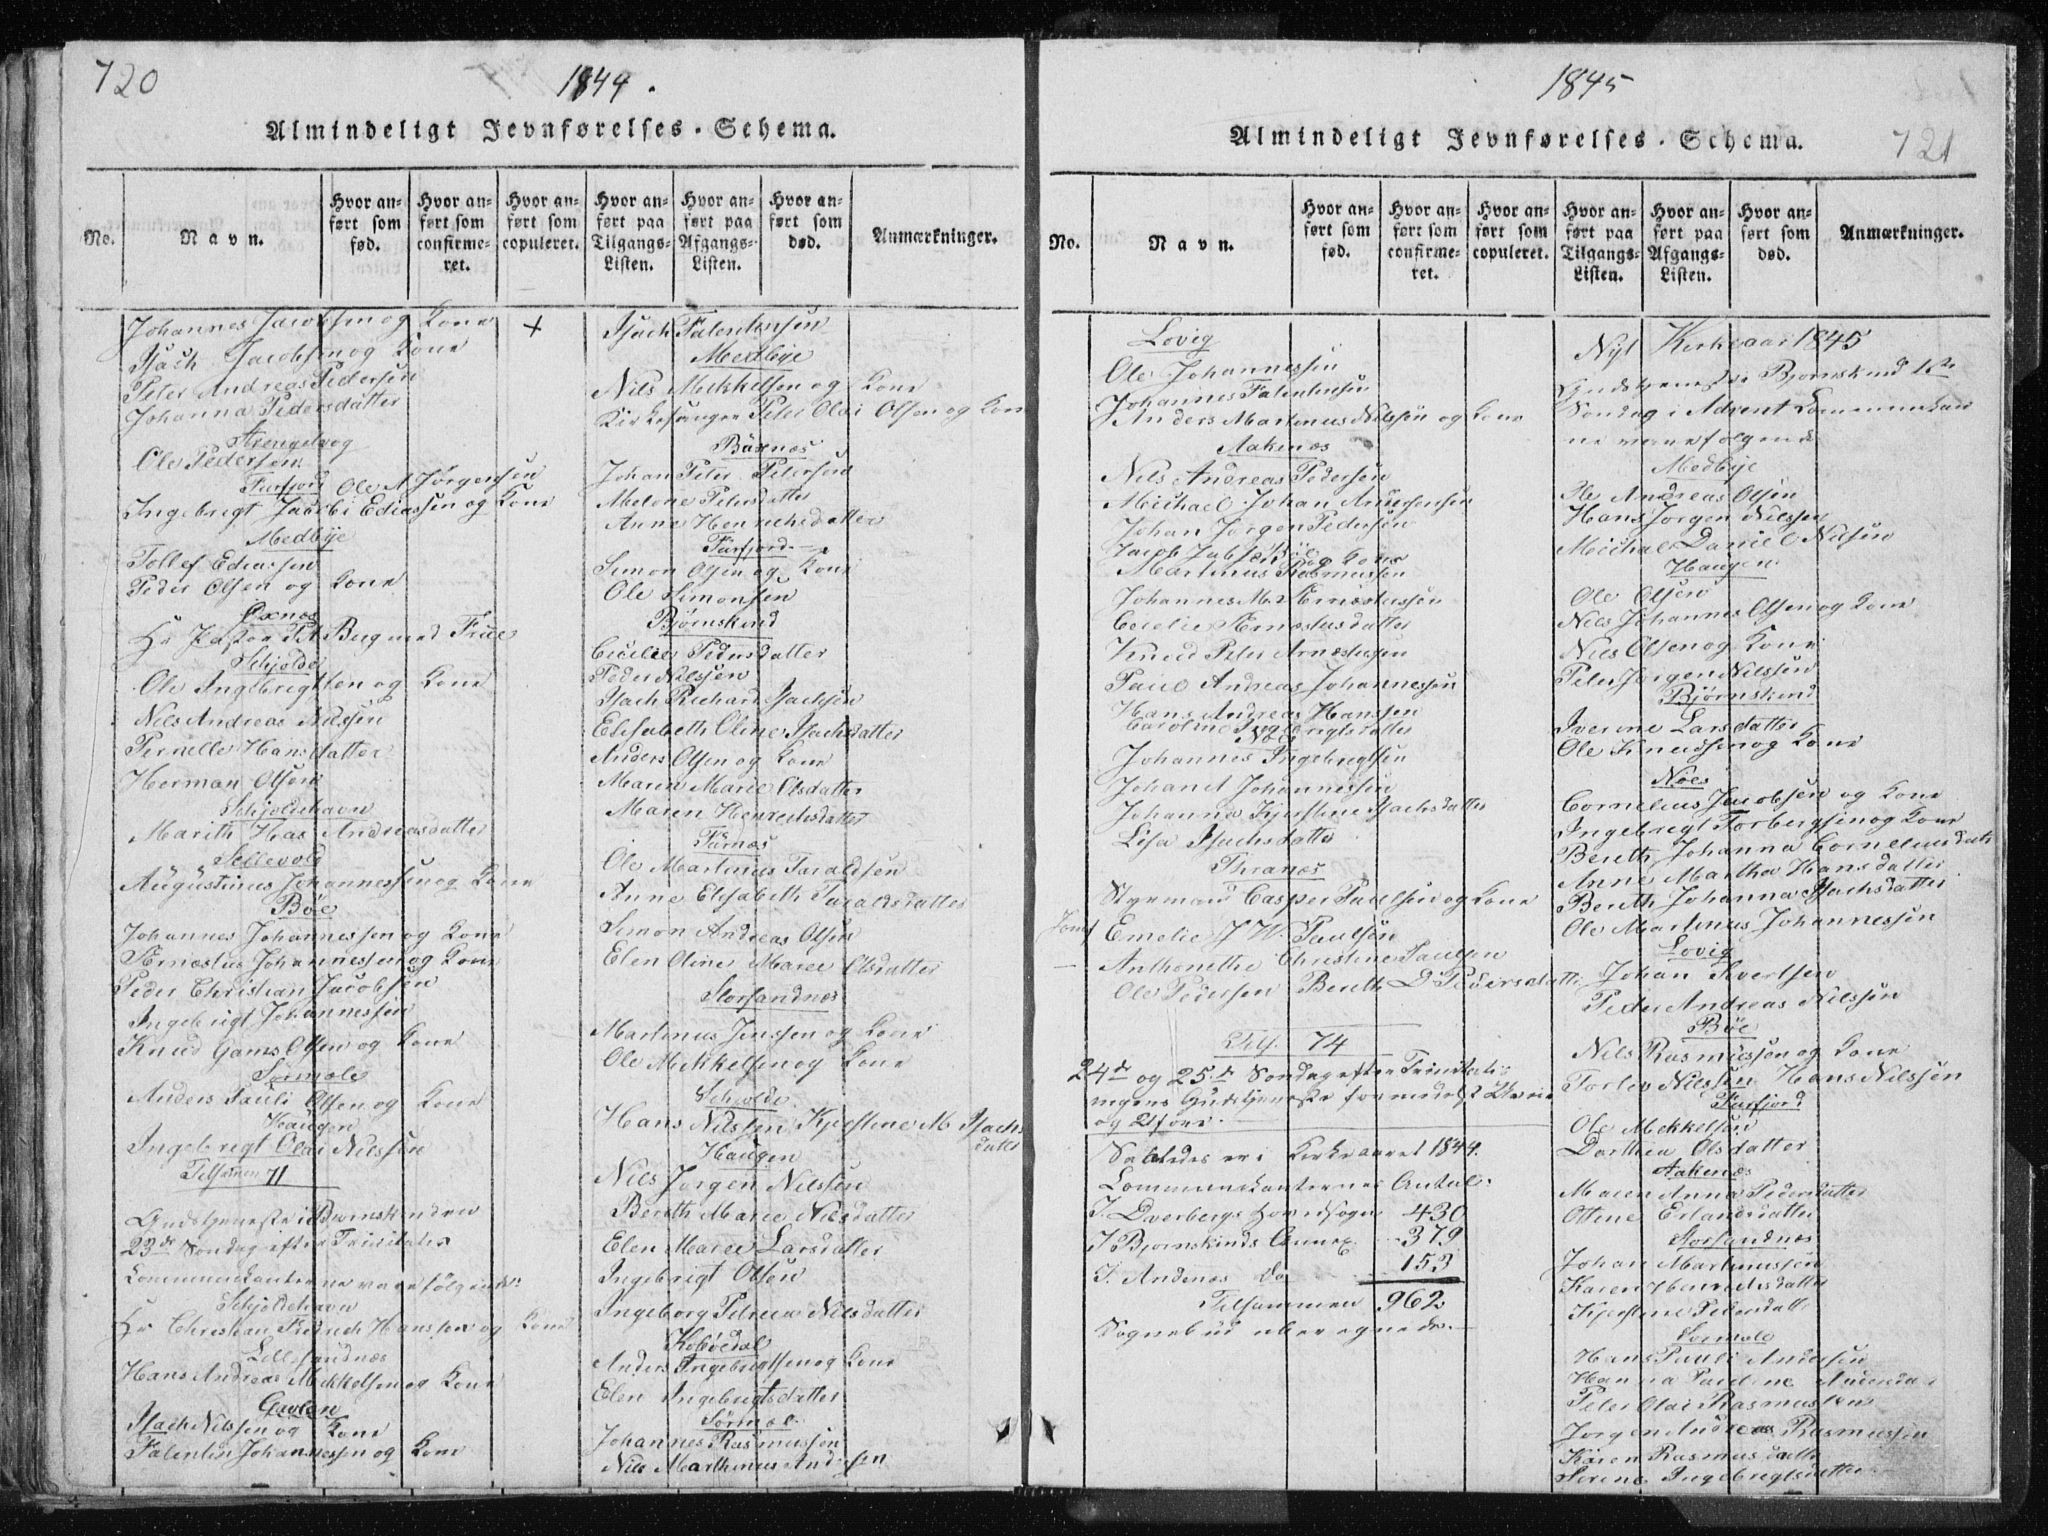 720
1844.
Almindeligt Jevnførelses-Schema.
No.
Navn.
Hvor anført som fød.
Hvor anført som confirmeret.
Hvor anført som copuleret.
Hvor anført paa Tilgangs-Listen.
Hvor anført paa Afgangs-Listen.
Hvor anført som død.
Anmærkninger.
Johannes Jacobsen og Kone +
Isach Jacobsen og Kone
Peter Andreas Pedersen
Johanna Pedersdatter
Ole Pedersen
Furfjord Ole A Jørgensen
Ingebrigt Jacobi Ediassen og Kone
Medbye
Tollef Ediassen
Peder Olsen og Kone
Øxnæs
Hr Pastor Berg med Frue
Schjolde
Ole Ingebrigtsen og Kone
Nils Andreas Nilssen
Pernelle Hansdatter
Herman Olsen
Schjoldehavn
Marith Andreasdatter
Sellevold
Augustinus Johannessen og Kone
Bøe
Johannes Johannessen og Kone
Ærnæstus Johannessen og Kone
Peder Christian Jacobsen
Ingebrigt Johannessen
Knud Gams Olsen og Kone
Sørmæle
Anders Pauli Olsen og Kone
Haugen
Ingebrigt Olai Nilssen
Tilsamen 71
Gudstjeneste i Bjørnskinden
23de Søndag efter Trinitatis
Kommunikanterne vare følgende:
Schjoldehavn
Hr Christian Fredrich Hanssen og Kone
Lillesandnæs
Hans Andreas Mikkelsen og Kone
Gavlen
Isach Nilssen og Kone
Falentin Johannessen og Kone
Isach Falentinsen
Medbye
Nils Mekkelsen og Kone
Kirkesanger Peter Olai Olsen og Kone
Buxnæs
Johan Peter Petersen
Melene Petersdatter
Anne Henrichsdatter
Furfjord
Simon Olsen og Kone
Ole Simonsen
Bjørnskind
Cicilie Pedersdatter
Peder Nilssen
Isach Richard Isachsen
Elisabeth Oline Isachsdatter
Anders Olsen og Kone
Maren Marie Olsdatter
Maren Henrechsdatter
Furnæs
Ole Martinus Taraldsen
Anne Elisabeth Taraldsdatter
Simon Andreas Olsen
Elen Oline Maree Olsdatter
Storsandnæs
Martinus Jenssen og Kone
Ole Mekkelsen og Kone
Schjolde
Hans Nilssen Kjerstine M Isachs
datter
Haugen
Nils Jørgen Nilssen
Bereth Marie Nilsdatter
Elen Maree Larsdatter
Ingebrigt Olsen
Ingeborg Petrea Nilsdatter
Kobbedal
Anders Ingebrigtsen og Kone
Elen Ingebrigtsdatter
Sørmæl
Johannes Rasmussen
Nils Marthinus Andersen
1845
721
Almindeligt Jevnførelses-Schema.
No.
Navn.
Hvor anført som fød.
Hvor anført som confirmeret.
Hvor anført som copuleret.
Hvor anført paa Tilgangs-Listen.
Hvor anført paa Afgangs-Listen.
Hvor anført som død.
Anmærkninger.
Lovig
Ole Johannessen
Johannes Falentinsen
Anders Martinus Nilssen og Kone
Aakenæs
Nils Andreas Pedersen
Michael Johan Andersensen
Johan Jørgen Pedersen
Bøe
Jacob Jacobsen og Kone
Martinus Rasmussen
Johannes M. Ærnæstussen
Cecelie Ærnæstusdatter
Knud Peter Arnestusen
Paul Andreas Johannessen
Hans Andreas Hanssen
Caroline Ingebrigtsdatter
Noes
Johannes Ingebrigtsen
Johan J Johannessen
Johanna Kjerstine Isachsdatter
Lisa Isachsdatter
Thranæs
Styrmand Casper Paulsen og Kone
Jomf Emelie J W. Paulsen
— Anthonethe Christine Paulsen
Ole Pedersen Bereth D Pedersdatter
Tils. 74
24de og 25de Søndag efter Trinitatis
ingens Gudstjeneste formedelst Uveir
og Uføre.
Saaledes er i Kirkeaaret 1844.
Kommunikanternes Antal:
I. Dverbergs Hovedsogn 430
I Bjørnskinds Annex 379
I. Andenæs Do 153
Tilsammen 962
Sognebud uberegnede.
Nyt Kirkeaar 1845
Gudstjeneste i Bjørnskind 1ste
Søndag i Advent Kommunikan
ne vare følgende
Medbye
Ole Andreas Olsen
Hans Jørgen Nilssen
Michal Daniel Nilsen
Haugen
Ole Olsen
Nils Johannes Olsen og Kone
Nils Olsen og Kone
Peter Jørgen Nilssen
Bjørnskind
Iverine Larsdatter
Ole Knudsen og Kone
Nøes
Cornelius Jacobsen og Kone
Ingebrigt Torbergsen og Kone
Bereth Johanna Corneliusdatt
Anne Martha Hansdatter
Bereth Johanna Isachsdatter
Ole Martinus Johannessen
Lovig
Johan Sivertsen
Peder Andreas Nilssen
Bøe
Nils Rasmussen og Kone
Torlov Nilssen Hans Nilssen
Furfjord
Ole Mekkelsen
Dorthea Olsdatter
Aakenæs
Maren Anna Pedersdatter
Othne Erlandsdatter
Storsandnæs
Johan Martinussen
Karen Henriksdatter
Kjerstine Pedersdatt
Sørmæle
Hans Pauli Andersen
Hanna Pauline Andersda
Peter Olai Rasmussen
Jørgen Andreas Rasmussen
Karen Rasmusdatter
Sirene Ingebrigtsdatter